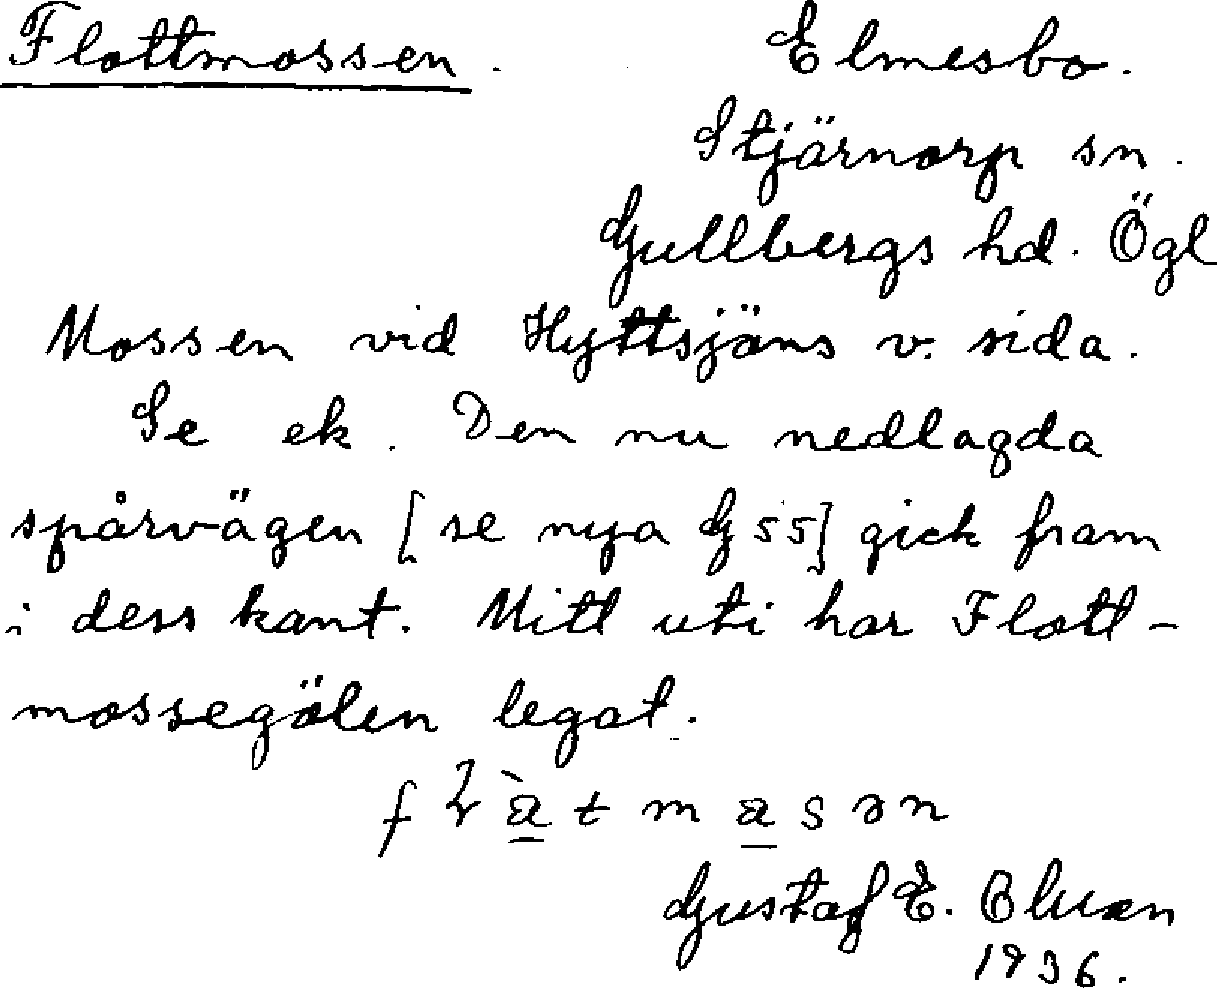 Flottmossen. Elmesbo.
Stjärnorp sn.
Gullbergs hd. Ögl
Mossen vid Hyttsjöns v. sida.
Se ek. Den nu nedlagda
spårvägen [se nya G 55] gick fram
i dess kant. Mitt uti har Flott-
mossegölen legat.
Gustaf E.
1936.